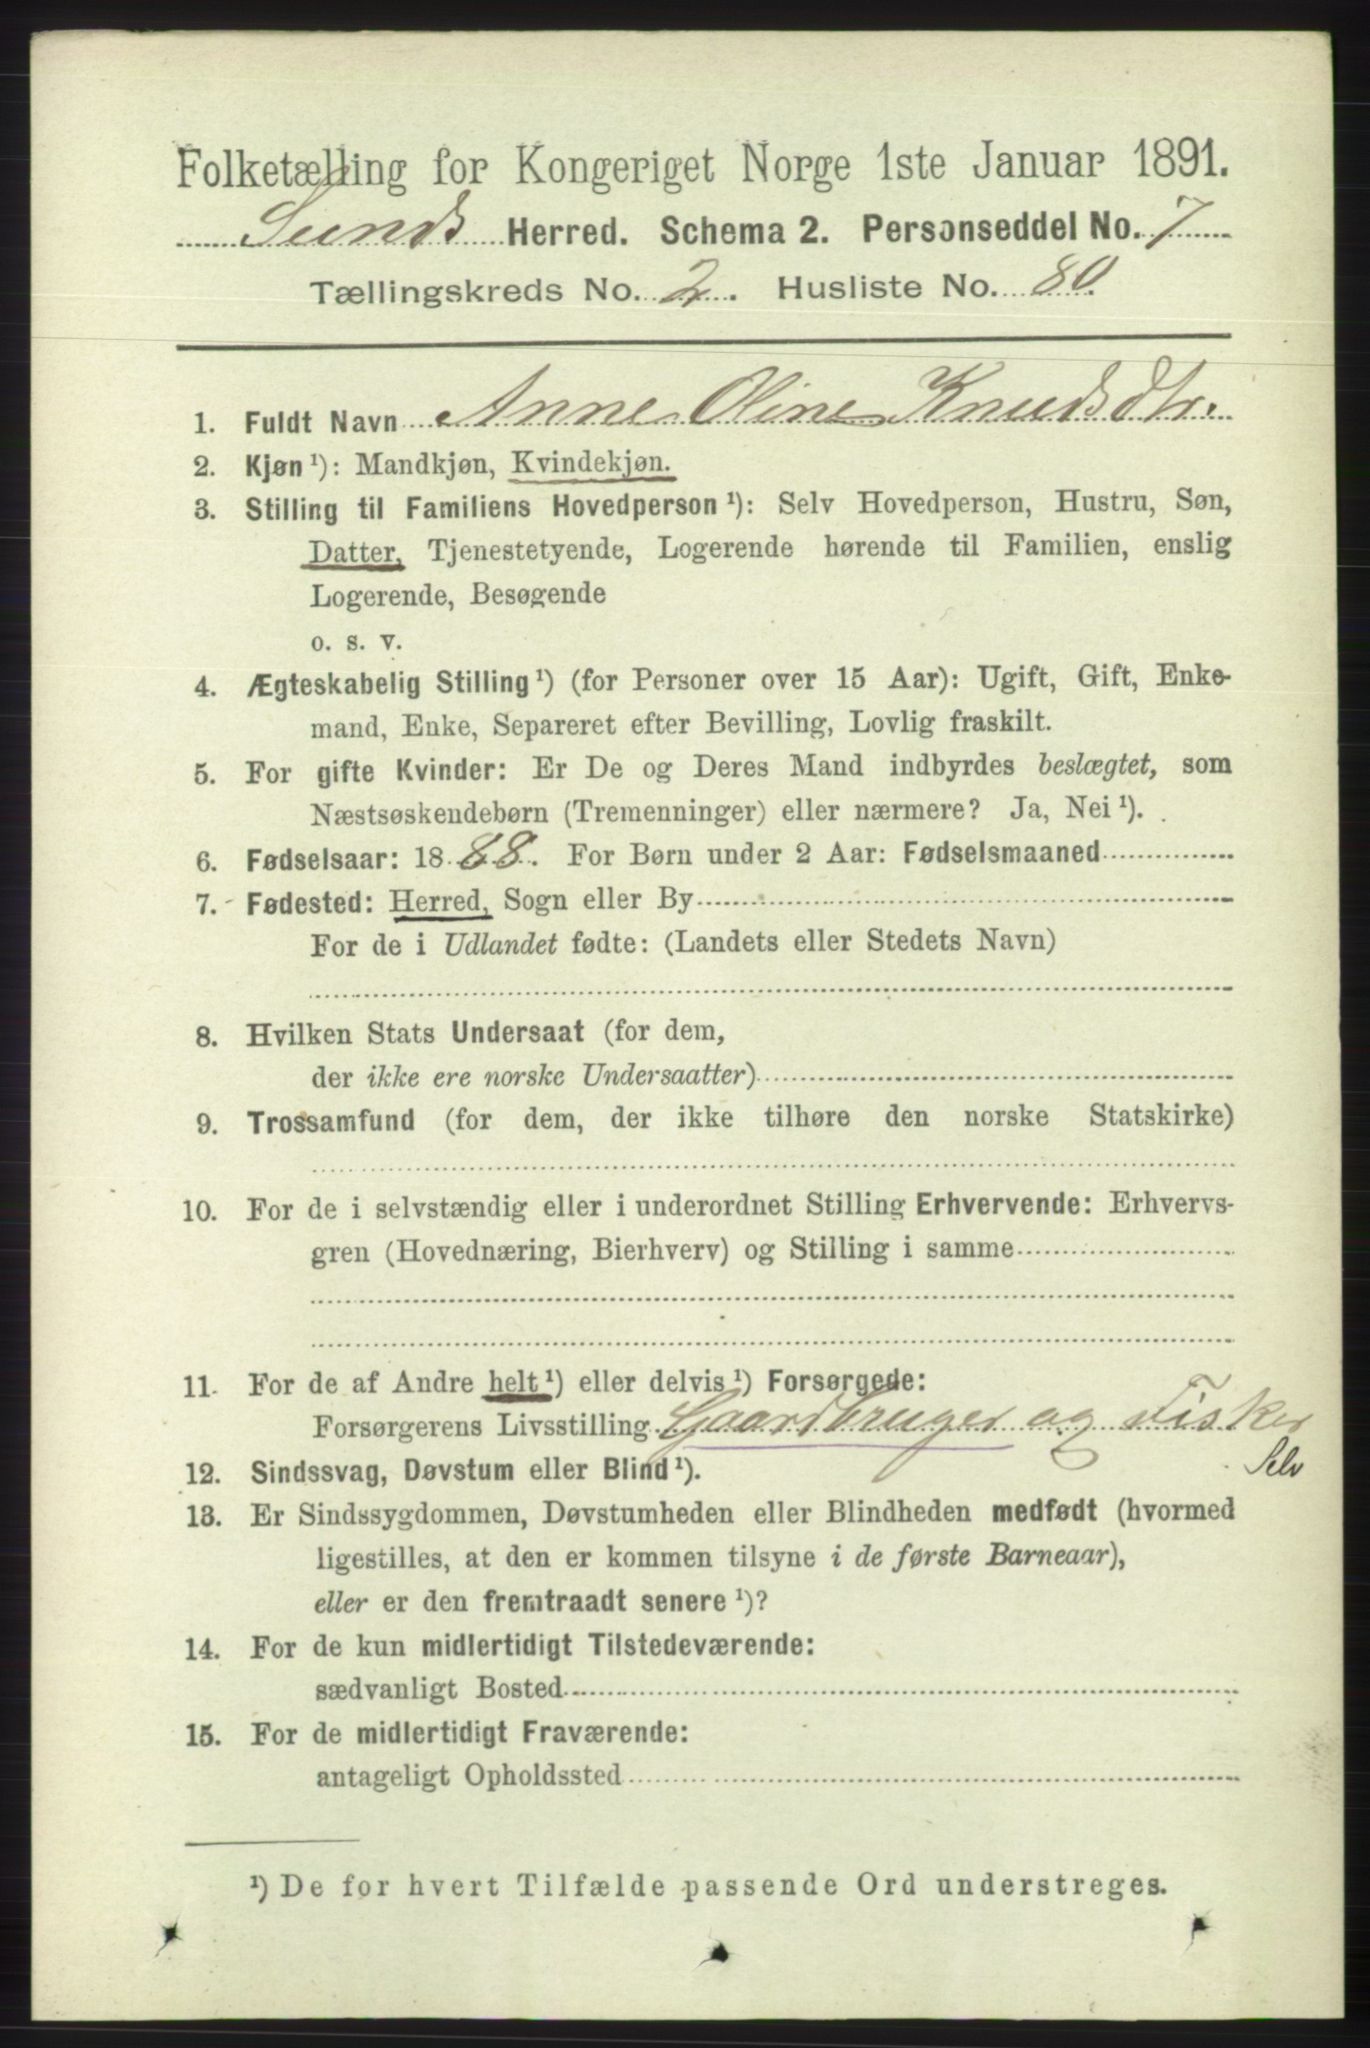 Folketælling for Kongeriget Norge 1ste Januar 1891.
Sunds Herred. Schema 2. Personseddel No. 7
Tællingskreds No. 2. Husliste No. 80
1. Fuldt Navn Anne Oline Knudsdtr.
2. Kjøn ¹): Mandkjøn, Kvindekjøn.
3. Stilling til Familiens Hovedperson ¹): Selv Hovedperson, Hustru, Søn,
Datter, Tjenestetyende, Logerende hørende til Familien, enslig
Logerende, Besøgende
o. s. v.
4. Ægteskabelig Stilling ¹) (for Personer over 15 Aar): Ugift, Gift, Enke-
mand, Enke, Separeret efter Bevilling, Lovlig fraskilt.
5. For gifte Kvinder: Er De og Deres Mand indbyrdes beslægtet, som
Næstsøskendebørn (Tremenninger) eller nærmere? Ja, Nei ¹).
6. Fødselsaar: 1888. For Børn under 2 Aar: Fødselsmaaned
7. Fødested: Herred, Sogn eller By
For de i Udlandet fødte: (Landets eller Stedets Navn)
8. Hvilken Stats Undersaat (for dem,
der ikke ere norske Undersaatter)
9. Trossamfund (for dem, der ikke tilhøre den norske Statskirke)
10. For de i selvstændig eller i underordnet Stilling Erhvervende: Erhvervs-
gren (Hovednæring, Bierhverv) og Stilling i samme
11. For de af Andre helt ¹) eller delvis ¹) Forsørgede:
Forsørgerens Livsstilling Gaardbruger og Fisker
Selv
12. Sindssvag, Døvstum eller Blind ¹).
13. Er Sindssygdommen, Døvstumheden eller Blindheden medfødt (hvormed
ligestilles, at den er kommen tilsyne i de første Barneaar),
eller er den fremtraadt senere ¹)?
14. For de kun midlertidigt Tilstedeværende:
sædvanligt Bosted
15. For de midlertidigt Fraværende:
antageligt Opholdssted
¹) De for hvert Tilfælde passende Ord understreges.